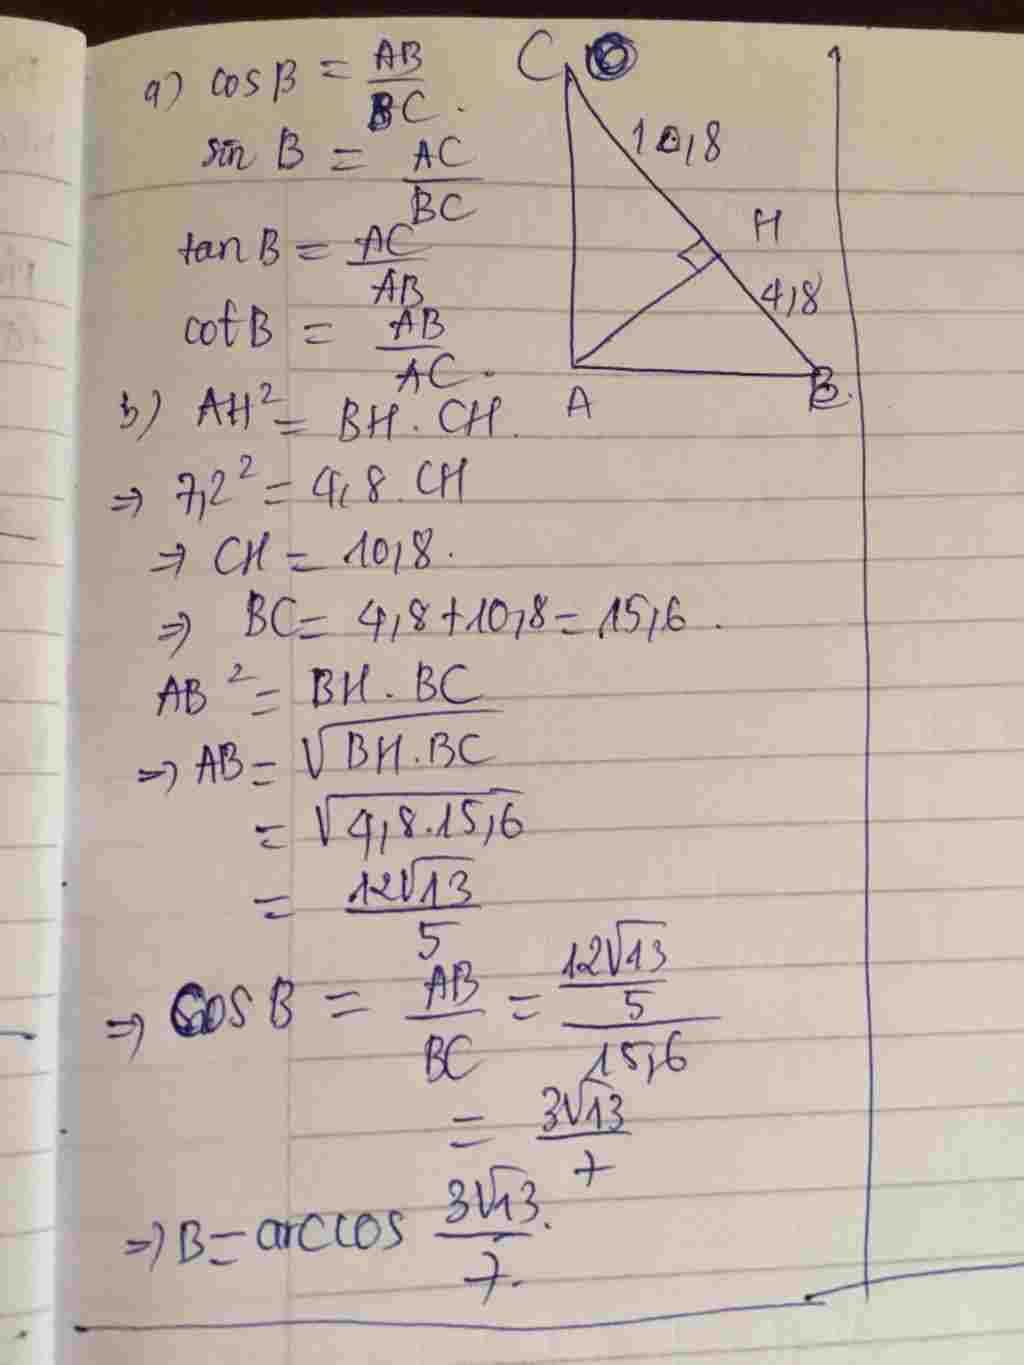 a) cosB = AB/BC.
sin B = AC/BC
tan B = AC/AB
cotB = AB/AC.
C
10,8
H
4,8
A
B
b) AH² = BH. CH.
⇒ 7,2² = 4,8. CH
⇒ CH = 10,8.
⇒ BC = 4,8+10,8 = 15,6.
AB² = BH. BC
⇒ AB = √(BH. BC)
= √(4,8.15,6)
= 12√13/5
⇒ cosB = AB/BC = (12√13/5)/15,6
= 3√13/7
⇒ B = arccos 3√13/7.